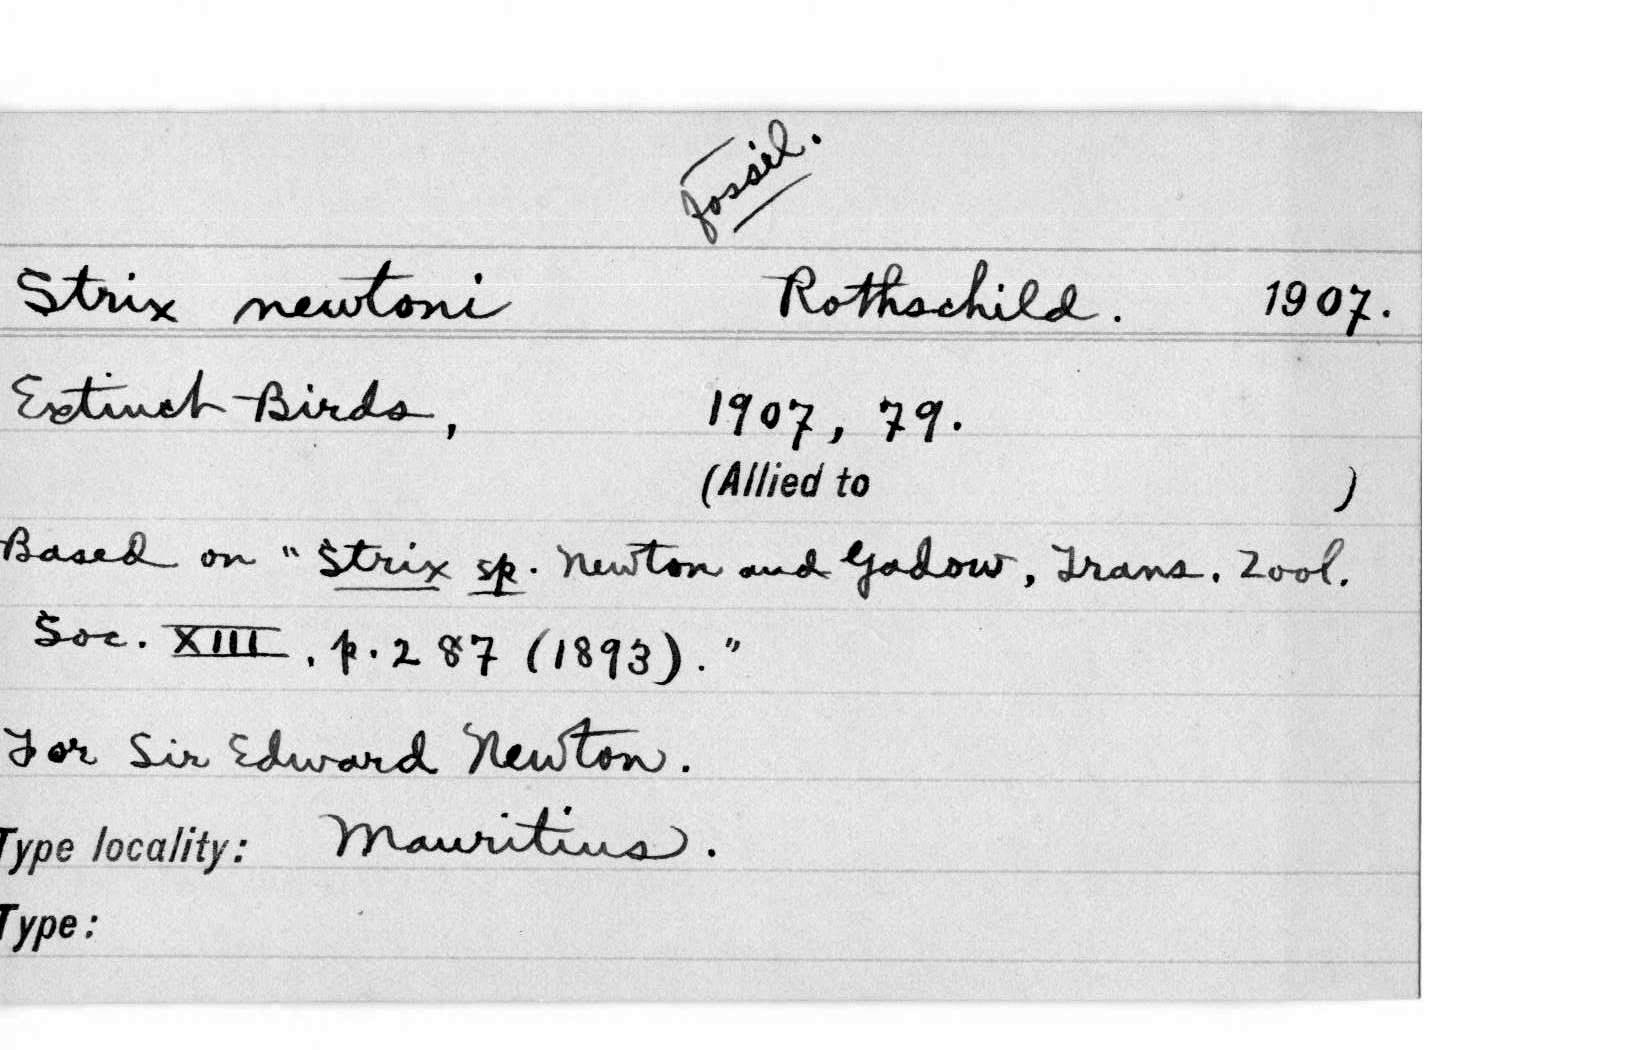 Fossil.
Strix newtoni Rothschild. 1907.
Extinct Birds, 1907, 79.
(Allied to )
Based on "Strix sp. Newton and Gadow, Trans. Zool.
Soc. XIII, p. 287 (1893)."
For Sir Edward Newton.
Type locality: Mauritius.
Type: